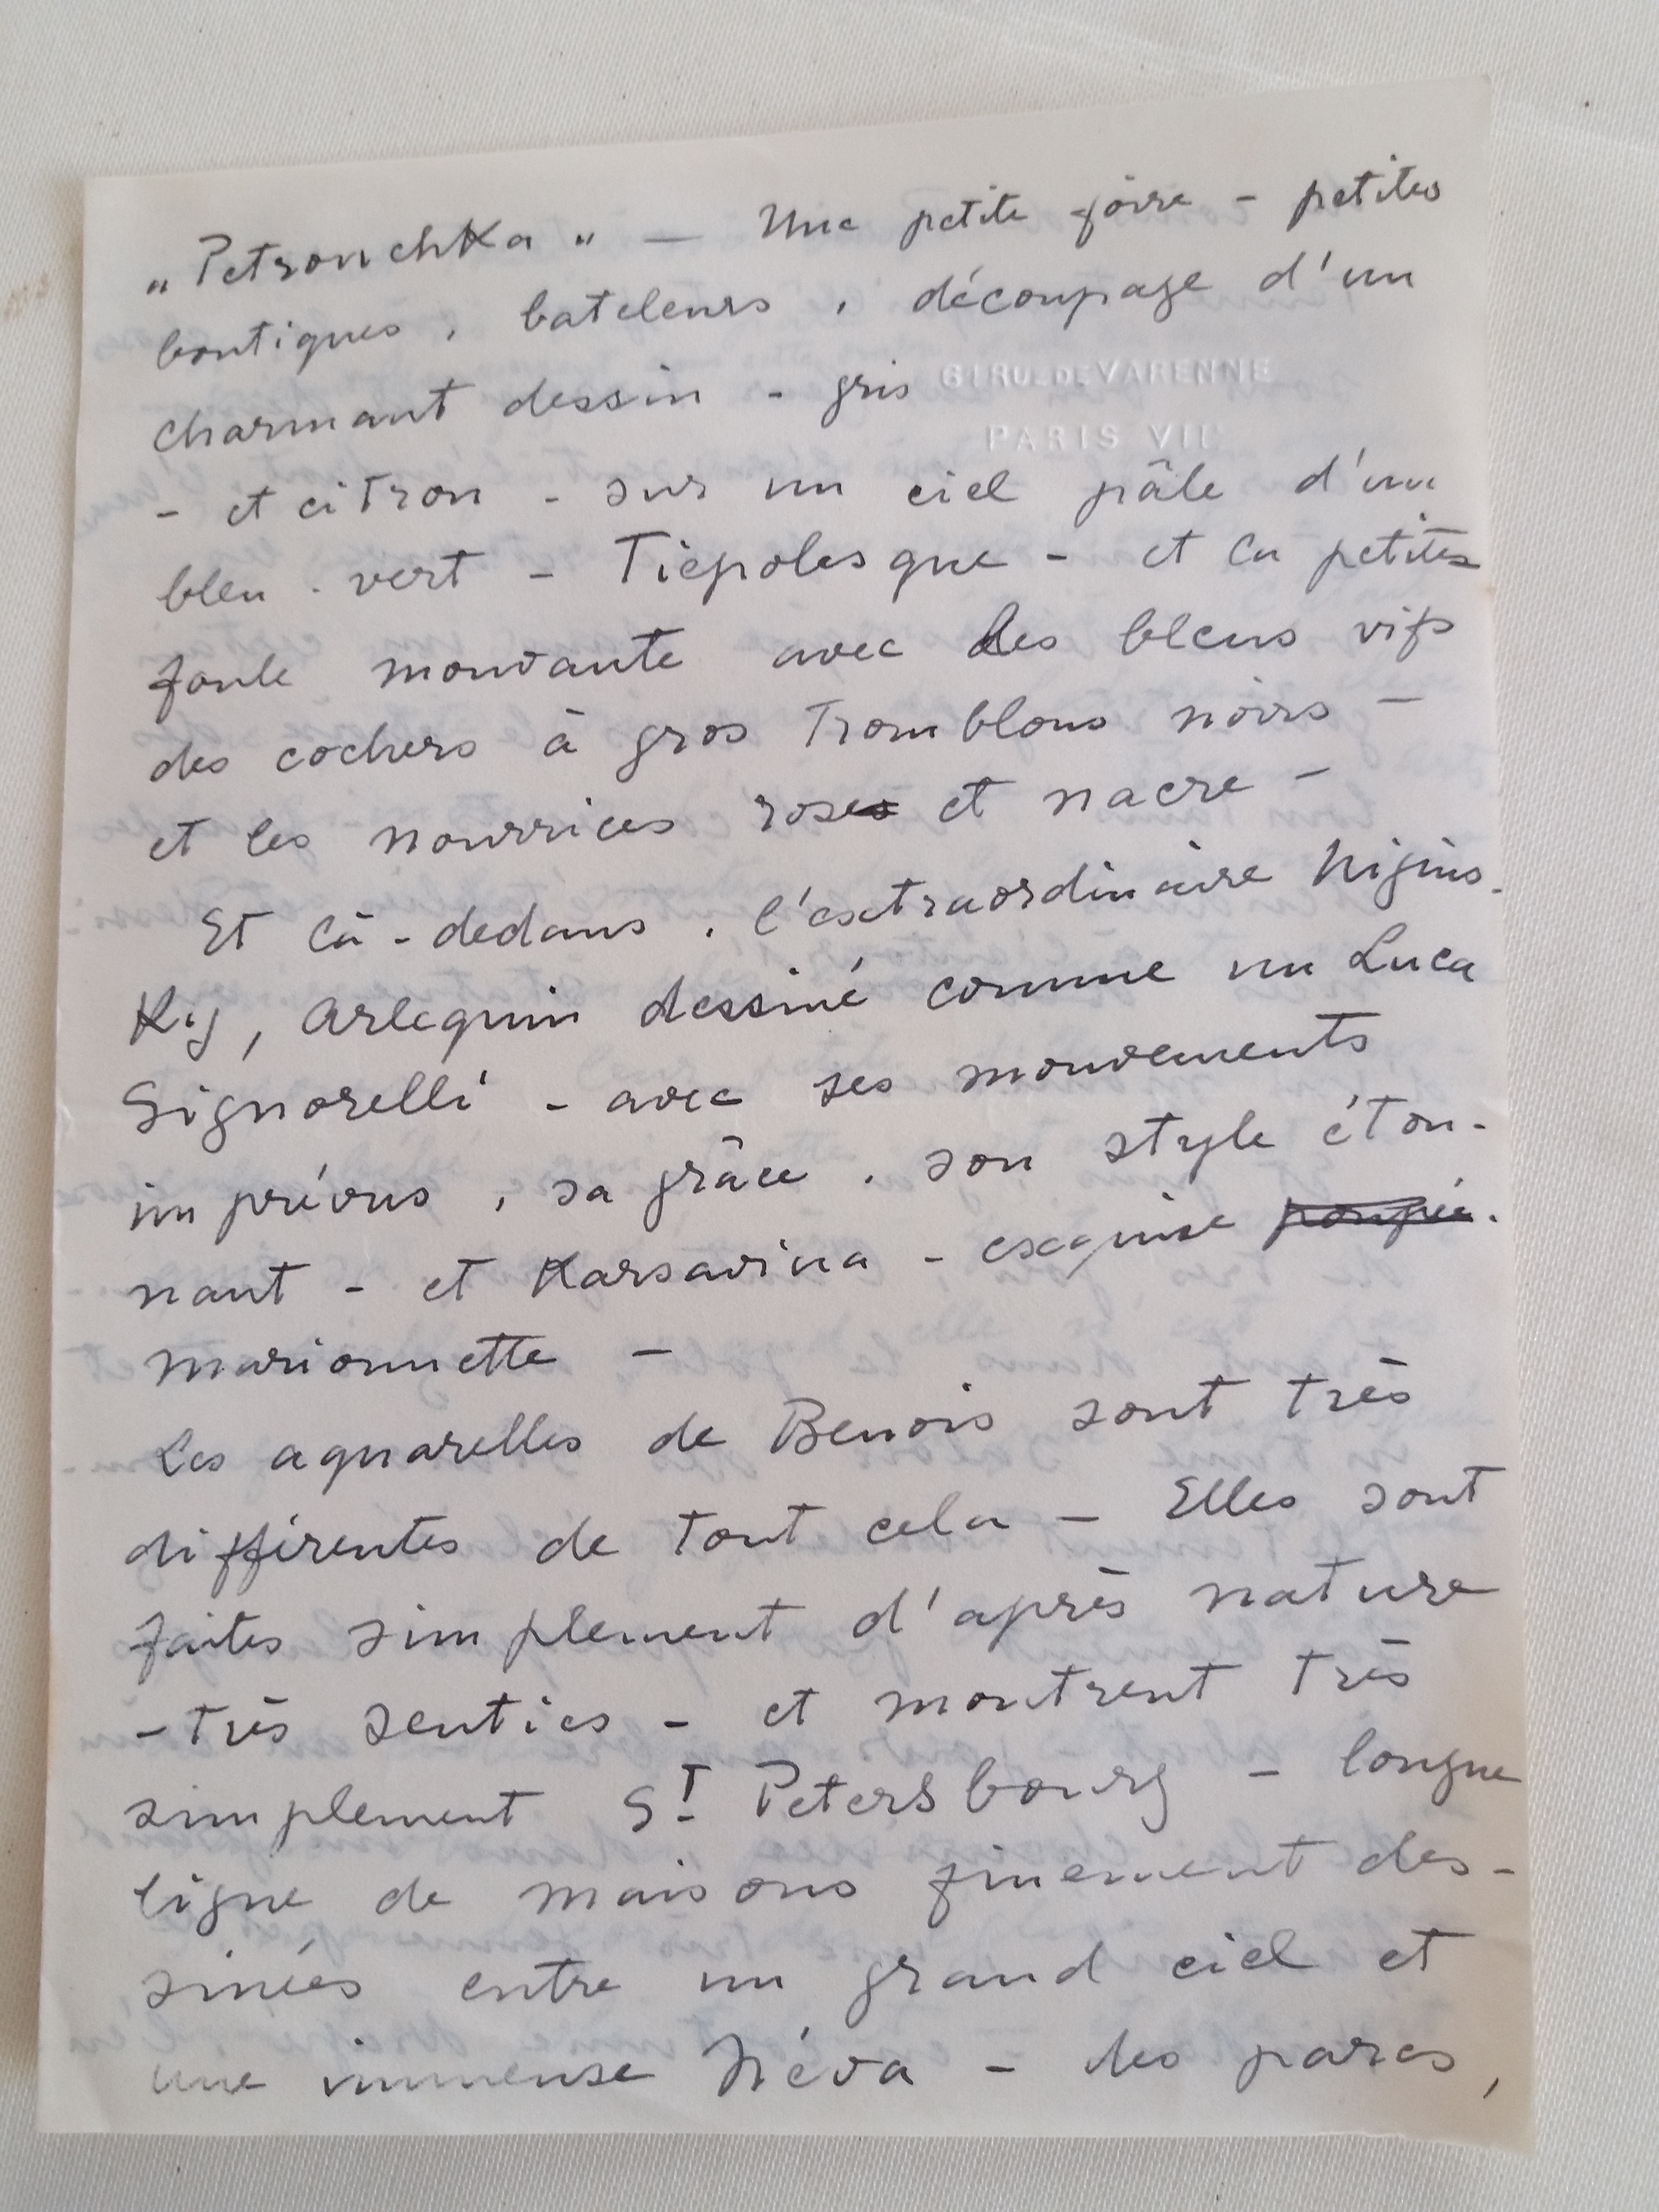 „Petrouchka" — Une petite foire - petites
boutiques, bateleurs, découpage d'un
charmant dessin - gris
61 RUE DE VARENNE
PARIS VIIᵉ
- et citron - sur un ciel pâle d'un
bleu-vert - Tiepolesque - et la petite
foule mouvante avec les bleus vifs
des cochers à gros tromblons noirs —
et les nourrices rose et nacre —
Et là-dedans, l'extraordinaire Nijins-
Ky, Arlequin dessiné comme un Luca
Signorelli - avec ses mouvements
imprévus, sa grâce, son style éton-
nant - et Karsavina - exquise poupée.
marionnette —
Les aquarelles de Benois sont très
différentes de tout cela — Elles sont
faites simplement d'après nature
- très senties - et montrent très
simplement St Petersbourg - longue
ligne de maisons finement des-
sinées entre un grand ciel et
une immense Néva - des parcs,